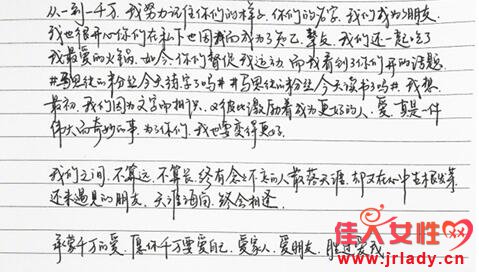 从一到一千万，我努力记住你们的样子，你们的名字，我们成为朋友，
我也很开心你们在私下也因我而成为了知己、挚友，我们还一起吃了
我最爱的火锅。如今，你们督促我运动，而我看到了你们开的话题，
#马思纯的粉丝今天练字了吗##马思纯的粉丝今天读书了吗#，我想，
最初，我们因为文字而相识，又彼此激励着成为更好的人，爱，真是一件
伟大而奇妙的事，为了你们，我也要变得更好。
我们之间，不算远，不算长，终有念念不忘的人散落天涯，却又在心中生根发芽，
还未遇见的朋友，天涯海角，终会相逢。
承蒙千万的爱，愿你千万要爱自己，爱家人，爱朋友，胜过爱我。
佳人女性
www.jrlady.cn